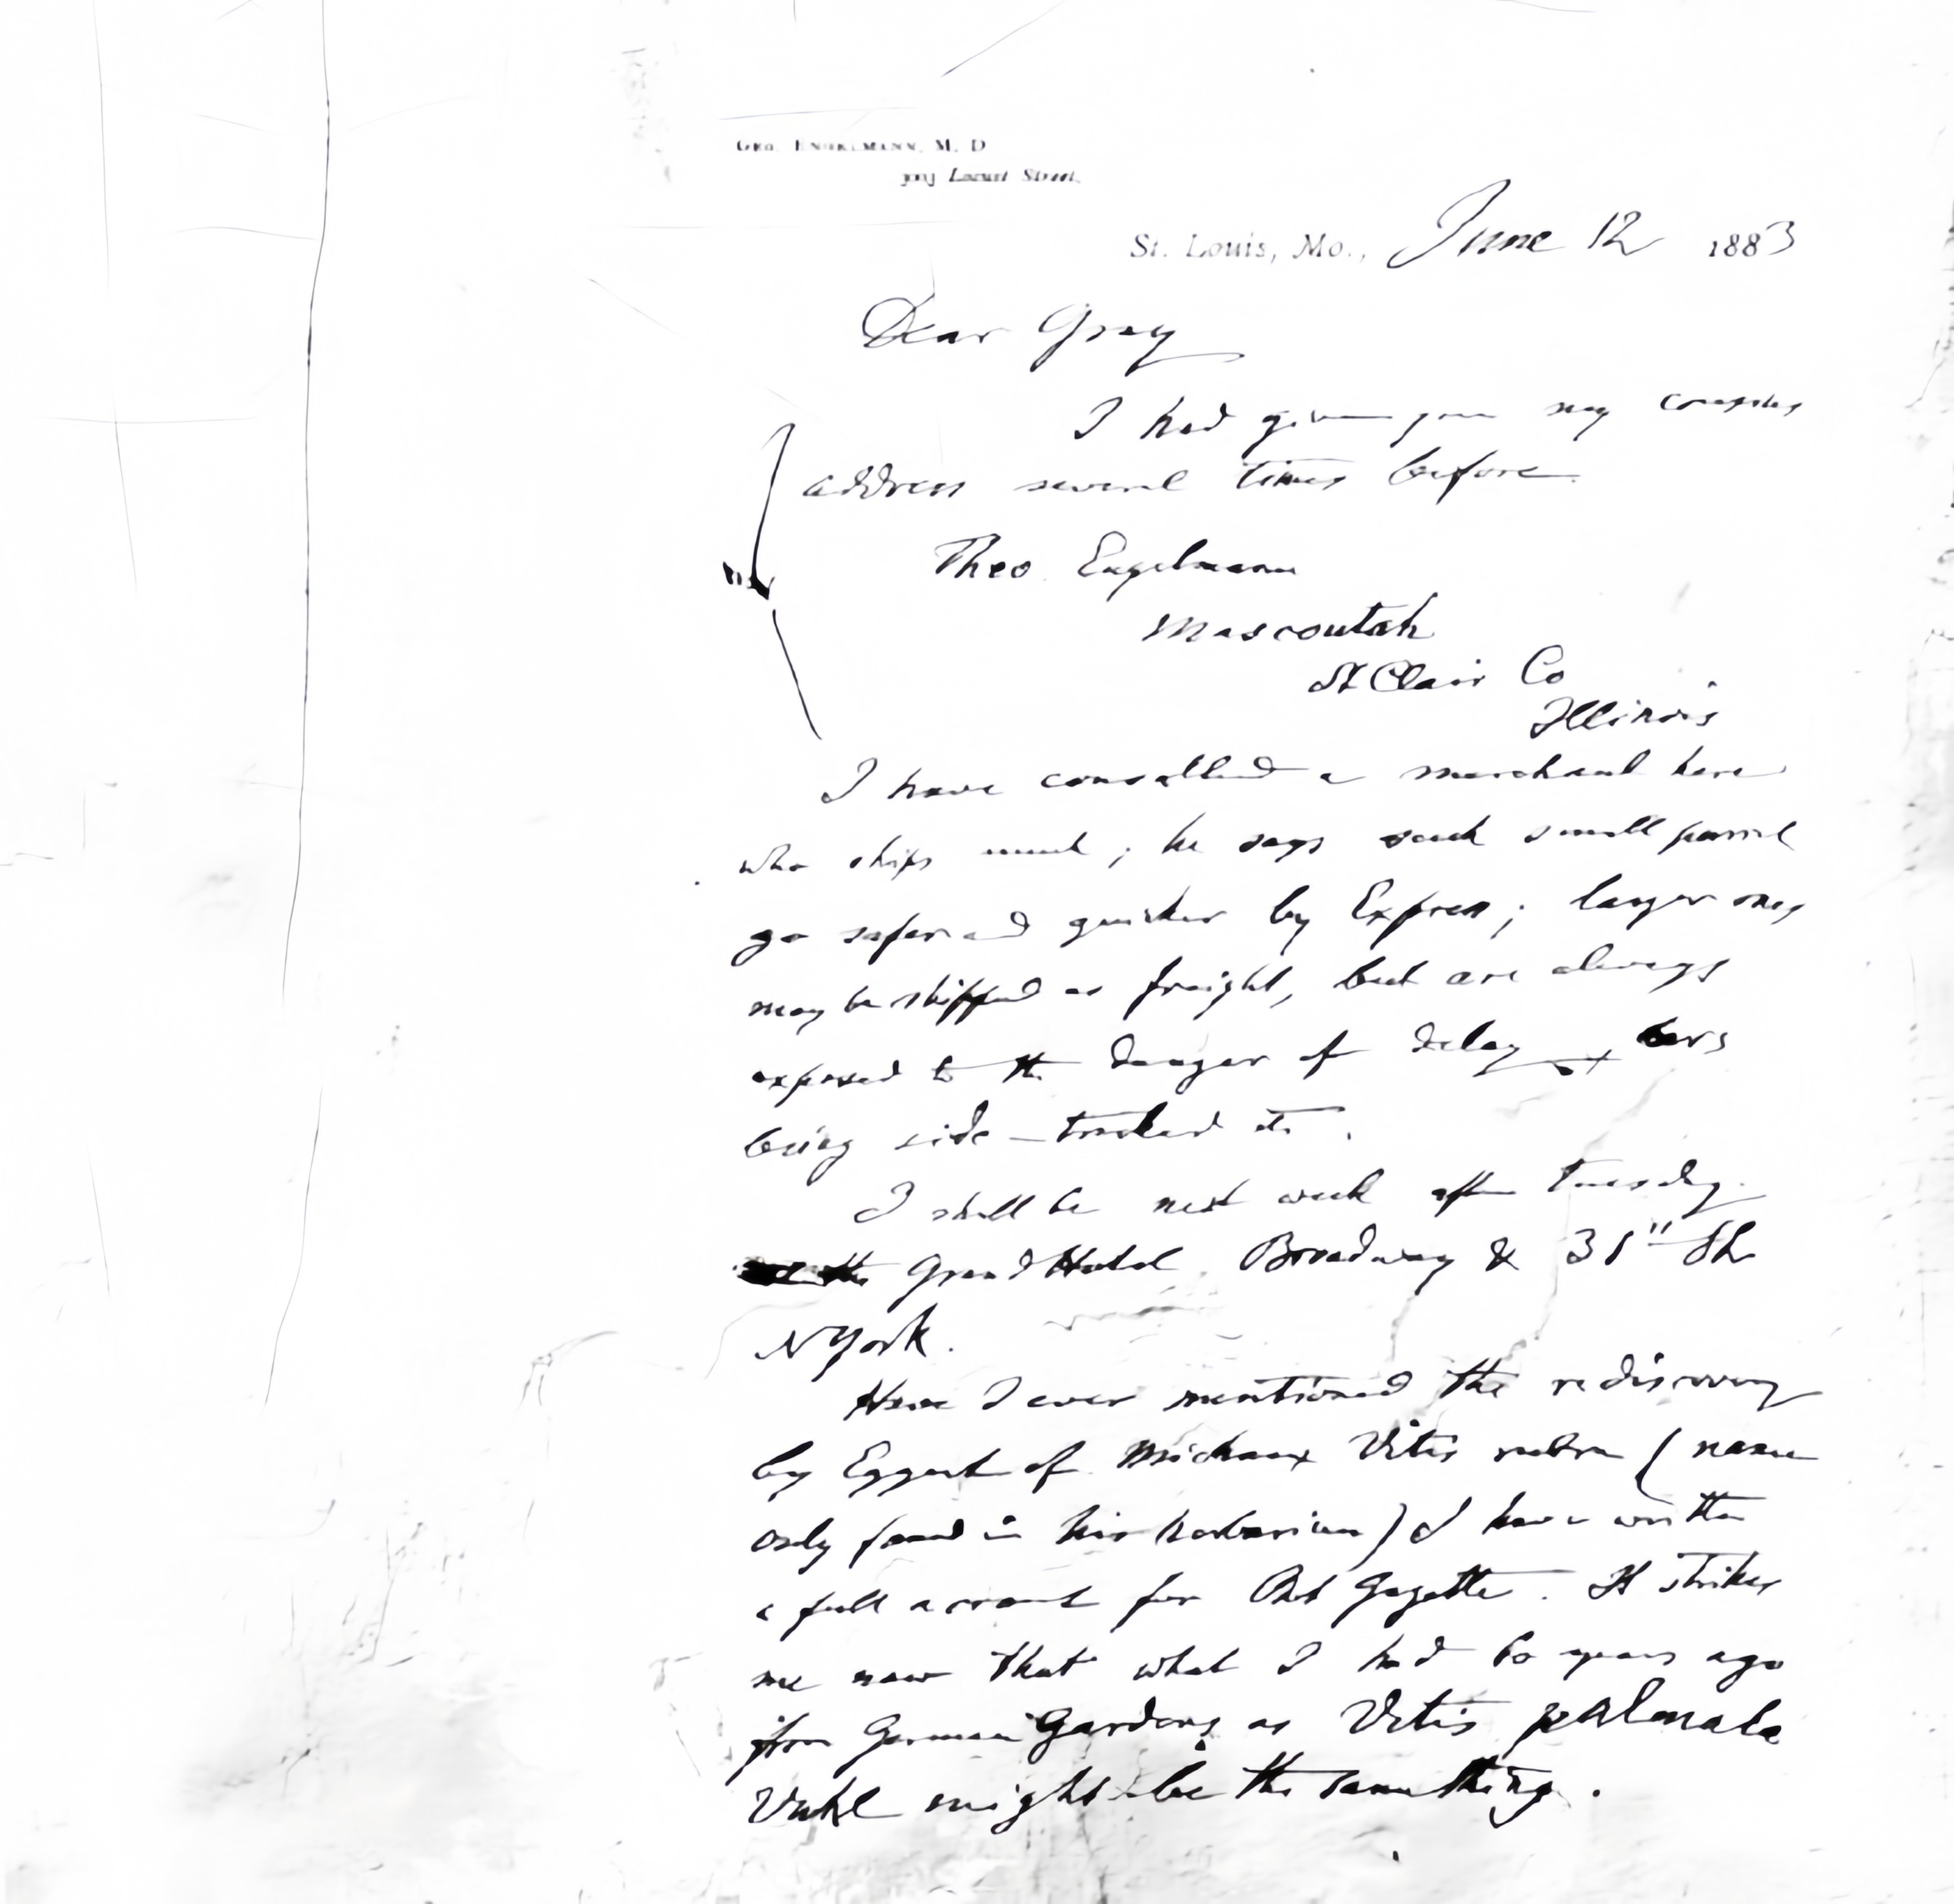 Geo. Engelmann, M. D
Locust Street,
St. Louis, Mo., June 12 1883
Dear Gray
I had given you my cousins
address several times before
Theo. Engelmann
Mascoutah
St Clair Co
Illinois
I have consulted a merchant here
who ships much; he says such small parcel
go safer and quicker by Express; larger ones
may be shipped as freight, but are always
exposed to the danger of delay, cars
being side-tracked etc.
I shall be next week after Tuesday
Grand Hotel Broadway & 31st Str
N York.
Have I ever mentioned the rediscovery
by Eggert of Michaux Vitis rubra (name
only found in his herbarium) I have written
a full account for Bot Gazette. It strikes
me now that what I had 60 years ago
from German Gardens as Vitis palmata
Vahl might be the same thing.